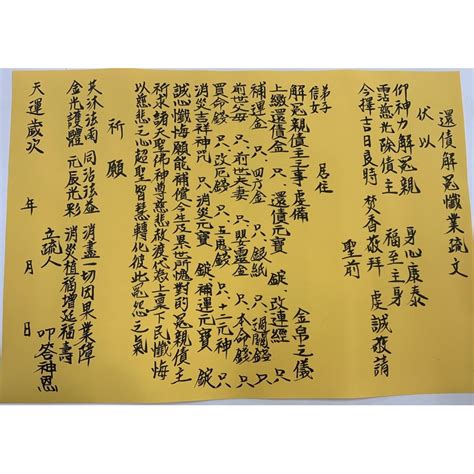 還債解冤懺業疏文
伏以
仰神力解冤親 身心康泰
霑慈光除債主 福至主身
今擇吉日良時 焚香敬拜 虔誠敬請
聖前
弟子
信女 居住
解冤親債主之事虔備 金帛之儀
上繳還債金 只 還債元寶 錠 改連經 只
補運金 只 四方金 只 銀紙 只 過關錢 只
前世父母 只 前世夫妻 只 嬰靈金 只 本命錢 只
買命錢 只 改厄錢 只 五鬼錢 只 十二元神 只
消災吉祥神咒 只 消災元寶 錠 補運元寶 錠
誠心懺悔願能補償今生及累世所愧對的冤親債主
祈求諸天聖佛神尊慈悲赦渡代為上稟下民懺悔
以慈悲之心超聖智慧轉化彼此冤怨之氣
祈願
英沐法雨 同沾法益 消盡一切因果業障
金光護體 元辰光彩 消災植福增延福壽
立疏人 叩答神恩
天運歲次 年 月 日